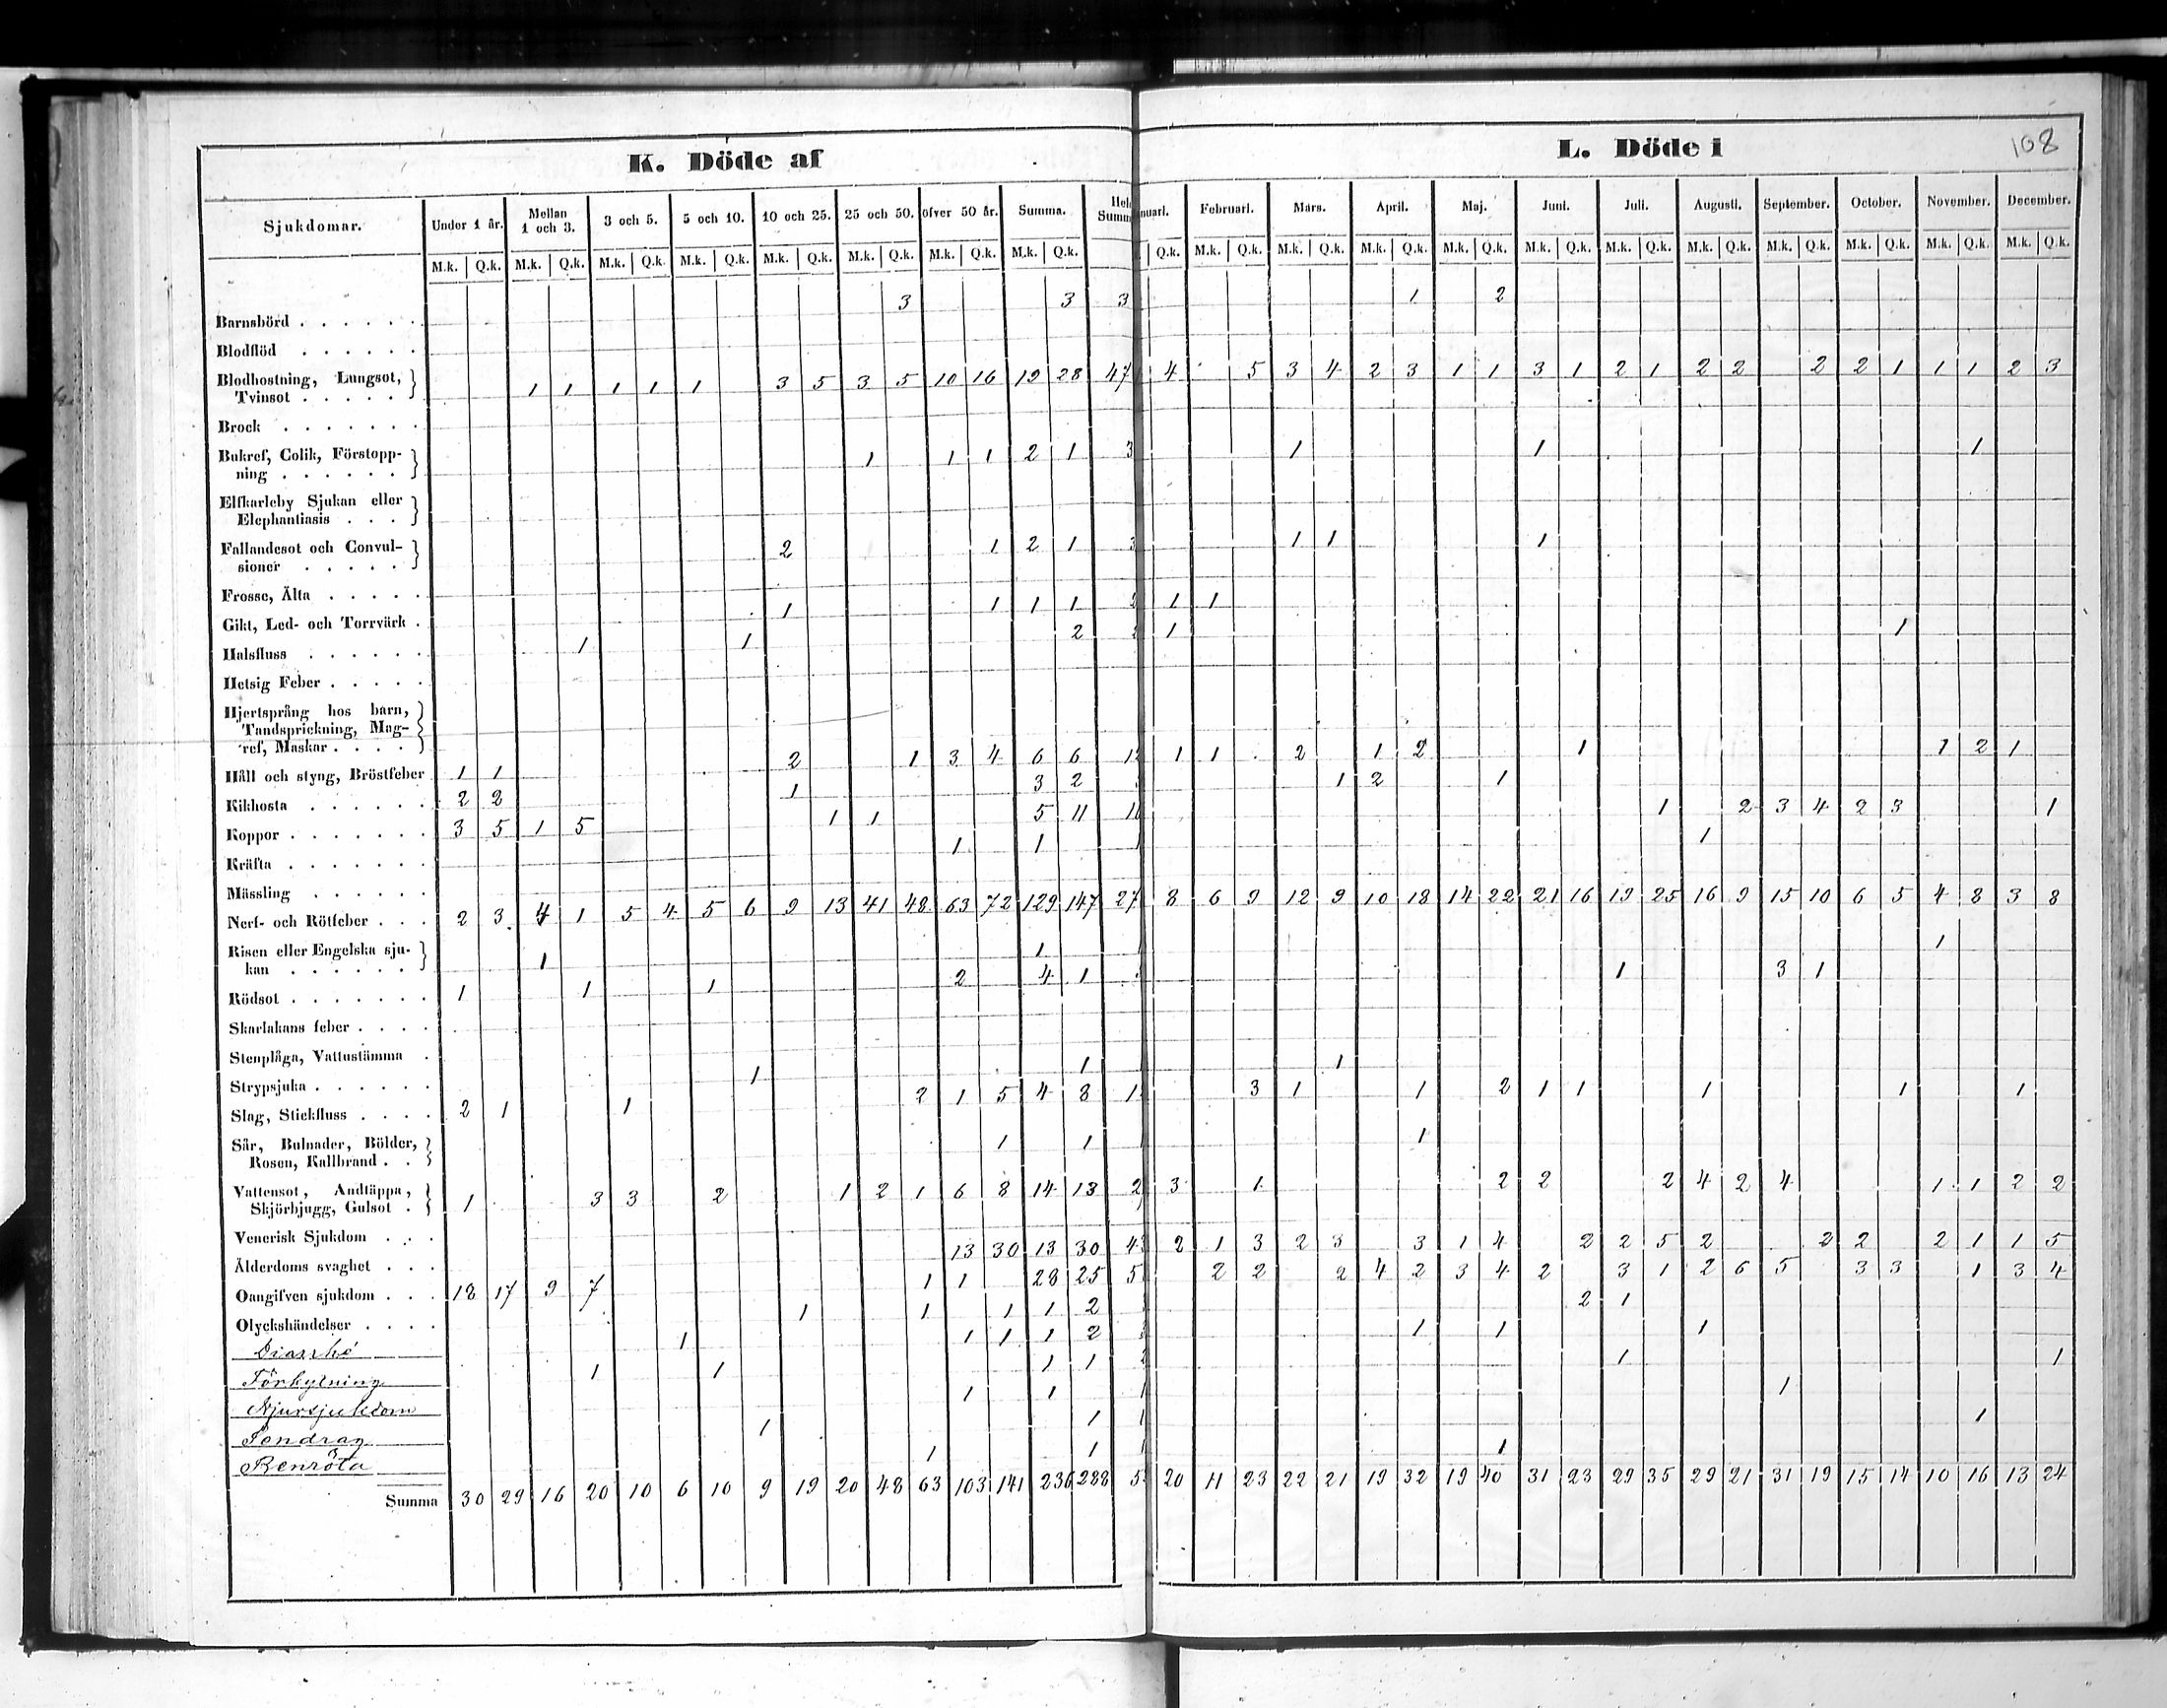 K. Döde af
L. Döde i
108
Sjukdomar. Under 1 år. Mellan 1 och 3. 3 och 5. 5 och 10. 10 och 25. 25 och 50. öfver 50 år. Summa. Summ nuari. Februari. Mars. April. Maj. Juni. Juli. Augusti. September. October. November. December.
M.k. Q.k. M.k. Q.k. M.k. Q.k. M.k. Q.k. M.k. Q.k. M.k. Q.k. M.k. Q.k. M.k. Q.k. Q.k. M.k. Q.k. M.k. Q.k. M.k. Q.k. M.k. Q.k. M.k. Q.k. M.k. Q.k. M.k. Q.k. M.k. Q.k. M.k. Q.k. M.k. Q.k. M.k. Q.k.
Barnsbörd 3 3 3 1 2
Blodflöd
Blodhostning, Lungsot,
Tvinsot 1 1 1 1 1 3 5 3 5 10 16 19 28 47 4 5 3 4 2 3 1 1 3 1 2 1 2 2 2 2 1 1 1 2 3
Brock
Bukref, Colik, Förstopp-
ning 1 1 1 2 1 3 1 1 1
Elfkarleby Sjukan eller
Elephantiasis
Fallandesot och Convul-
sioner 2 1 2 1 3 1 1 1
Frosse, Älta
Gikt, Led- och Torrvärk 1 1 1 1 1 1
Halsfluss 1 1 2 1 1
Hetsig Feber
Hjertsprång hos barn,
Tandsprickning, Mag-
ref, Maskar
Håll och styng, Bröstfeber 1 1 2 1 3 4 6 6 12 1 1 2 1 2 1 1 2 1
Kikhosta 2 2 1 3 2 1 2 1
Koppor 3 5 1 5 1 1 5 11 1 2 3 4 2 3 1
Kräfta 1 1 1
Mässling
Nerf- och Rötfeber 2 3 4 1 5 4 5 6 9 13 41 48 63 72 129 147 27 8 6 9 12 9 10 18 14 22 21 16 19 25 16 9 15 10 6 5 4 8 3 8
Risen eller Engelska sju-
kan 1 1 1
Rödsot 1 1 1 2 4 1 1 3 1
Skarlakans feber
Stenplåga, Vattustämma
Strypsjuka 1 1 1
Slag, Stickfluss 2 1 1 2 1 5 4 8 1 3 1 1 2 1 1 1 1 1
Sår, Bulnader, Bölder,
Rosen, Kallbrand 1 1 1
Vattensot, Andtäppa,
Skjörbjugg, Gulsot 1 3 3 2 1 2 1 6 8 14 13 2 3 1 2 2 2 4 2 4 1 1 2 2
Venerisk Sjukdom
Ålderdoms svaghet 13 30 13 30 43 2 1 3 2 3 3 1 4 2 2 5 2 2 2 2 1 1 5
Oangifven sjukdom 18 17 9 7 1 1 28 25 5 2 2 2 4 2 3 4 2 3 1 2 6 5 3 3 1 3 4
Olyckshändelser 1 1 1 1 2 2 1
Diarrhé 1 1 1 1 2 1 1 1
Förkylning 1 1 1 1 1 1
Njursjukdom 1 1 1 1
Tondrag 1 1 1 1
Benröta 1 1 1 1
Summa 30 29 16 20 10 6 10 9 19 20 48 63 103 141 236 288 5 20 11 23 22 21 19 32 19 40 31 23 29 35 29 21 31 19 15 14 10 16 13 24